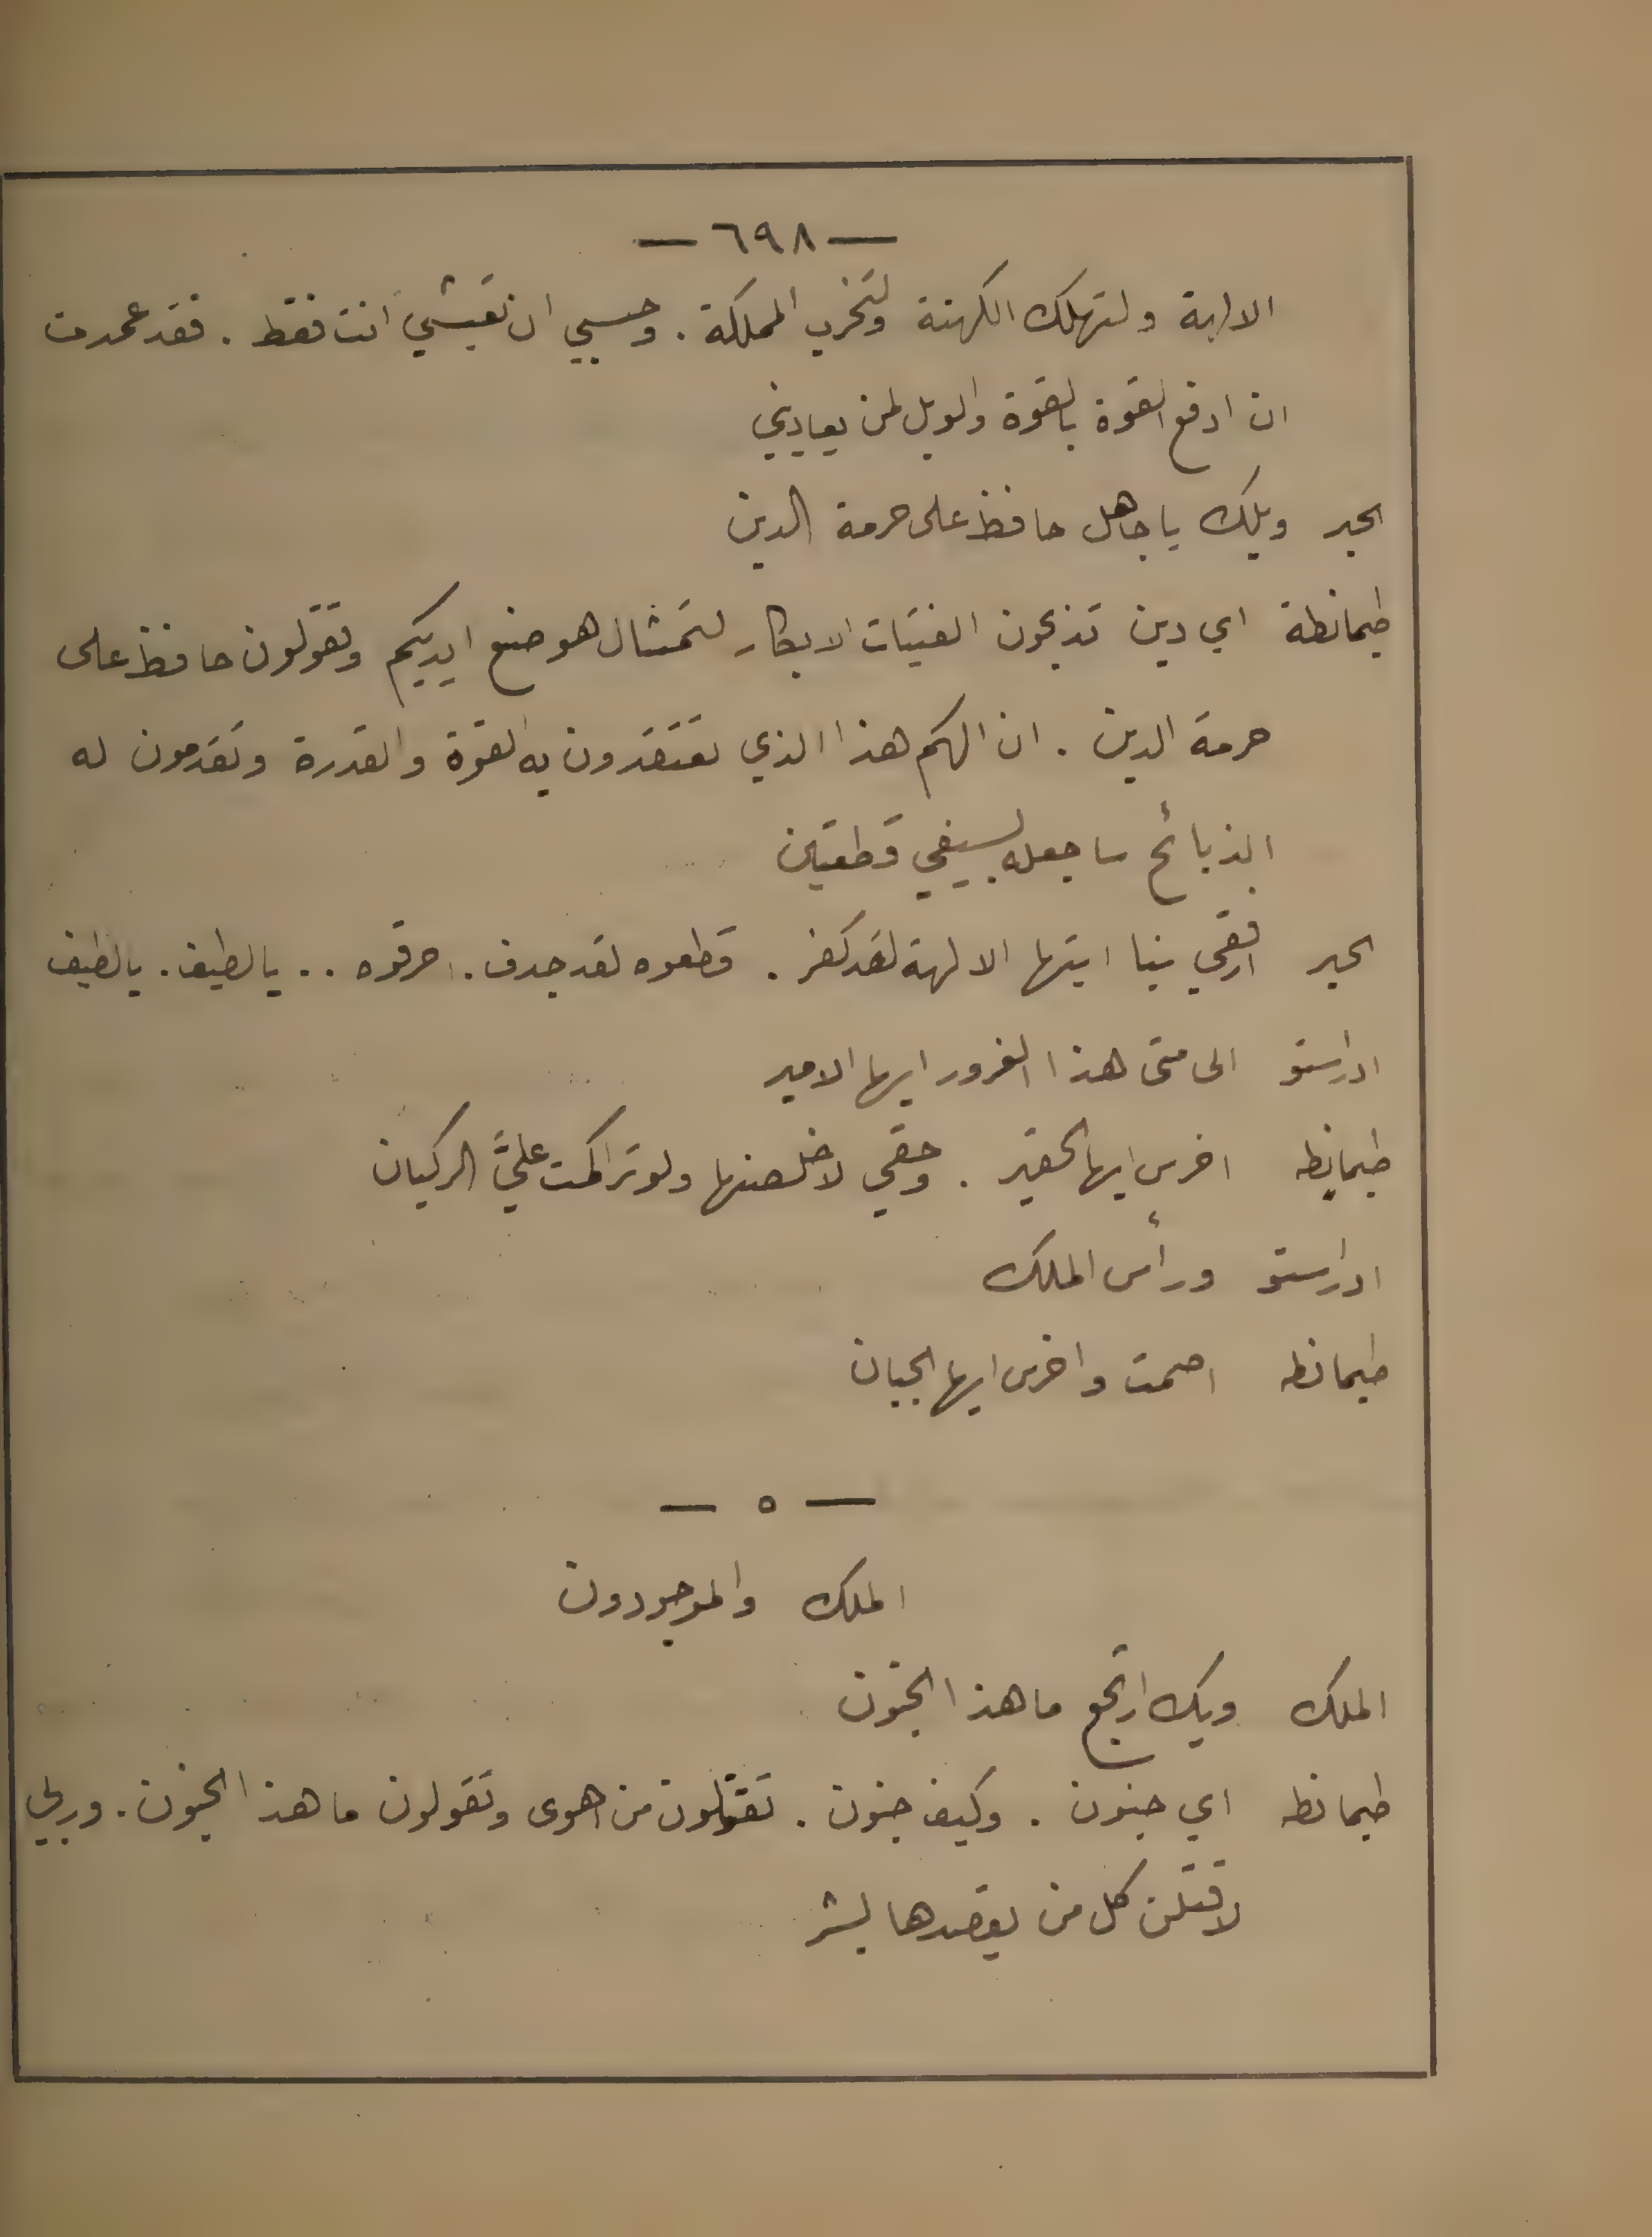 — ٦٩٨ —
الالهة ولتهلك الكهنة ولتخرب المملكة . وحسبي ان تعيشي انت فقط . فقد عمدت
ان ادفع القوة بالقوة والويل لمن يعاديني
الحبر ويلك يا جاهل حافظ على حرمة الدين
طيمانطة اي دين تذبحون الفتيات الابكار لتمثال هو صنع ايديكم وتقولون حافظ على
حرمة الدين . ان الهكم هذا الذي تعتقدون به القوة والقدرة وتقدمون له
الذبائح ساجعله بسيفي قطعتين
الحبر ارفقي بنا ايتها الالهة لقد كفر . قطعوه لقد جدف . احرقوه . . يا لطيف . يا لطيف
ادراستو الى متى هذا الغرور ايها الامير
طيمانطه اخرس ايها الحقير . وحقي لاخلصنها ولو تراكمت عليَّ الركبان
ادراستو ورأس الملك
طيمانطه اصمت واخرس ايها الجبان
— ٥ —
الملك والموجودون
الملك ويك ارتجع ما هذا الجنون
طيمانطه اي جنون . وكيف جنون . تقتلون من اهوى وتقولون ما هذا الجنون . وربي
لاقتلن كل من يقصدها بشر